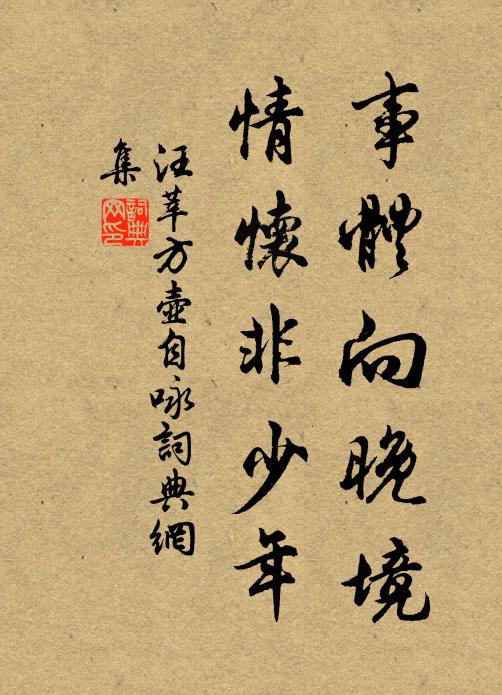 事體向晚境
情懷非少年
汪莘方壺自咏詞典網
集
詞典
网印